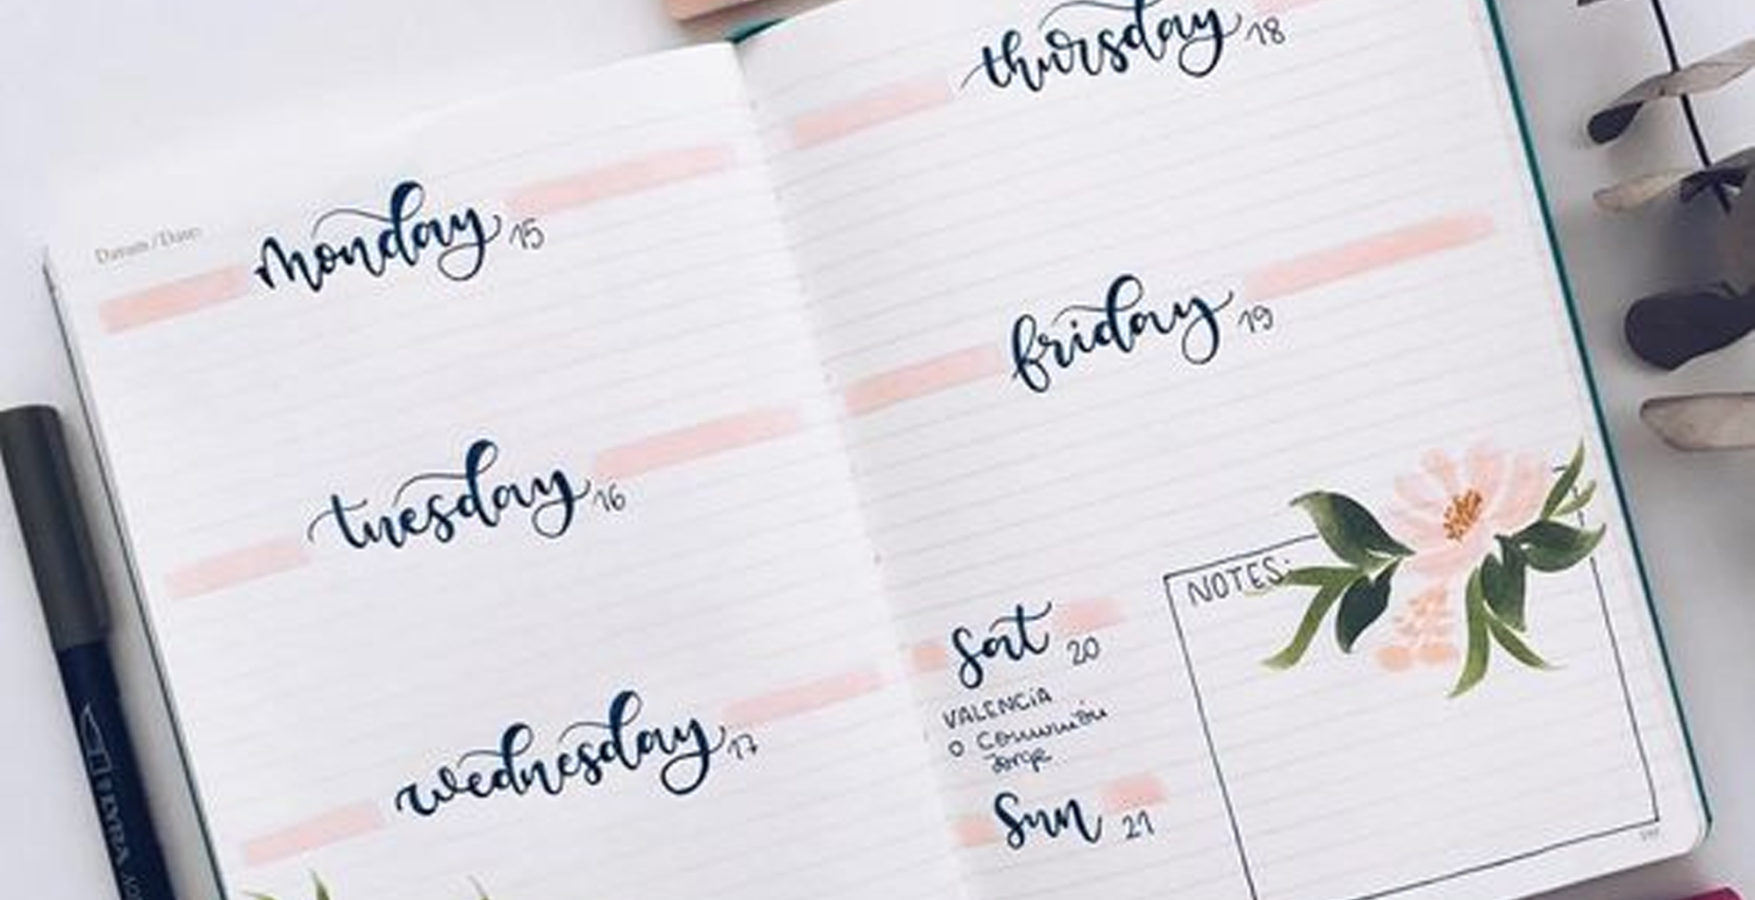 Datum / Date:
monday 15
tuesday 16
wednesday 17
thursday 18
friday 19
sat 20
VALENCiA
o Comunión
Jorge
sun 21
NOTES:
LYRA